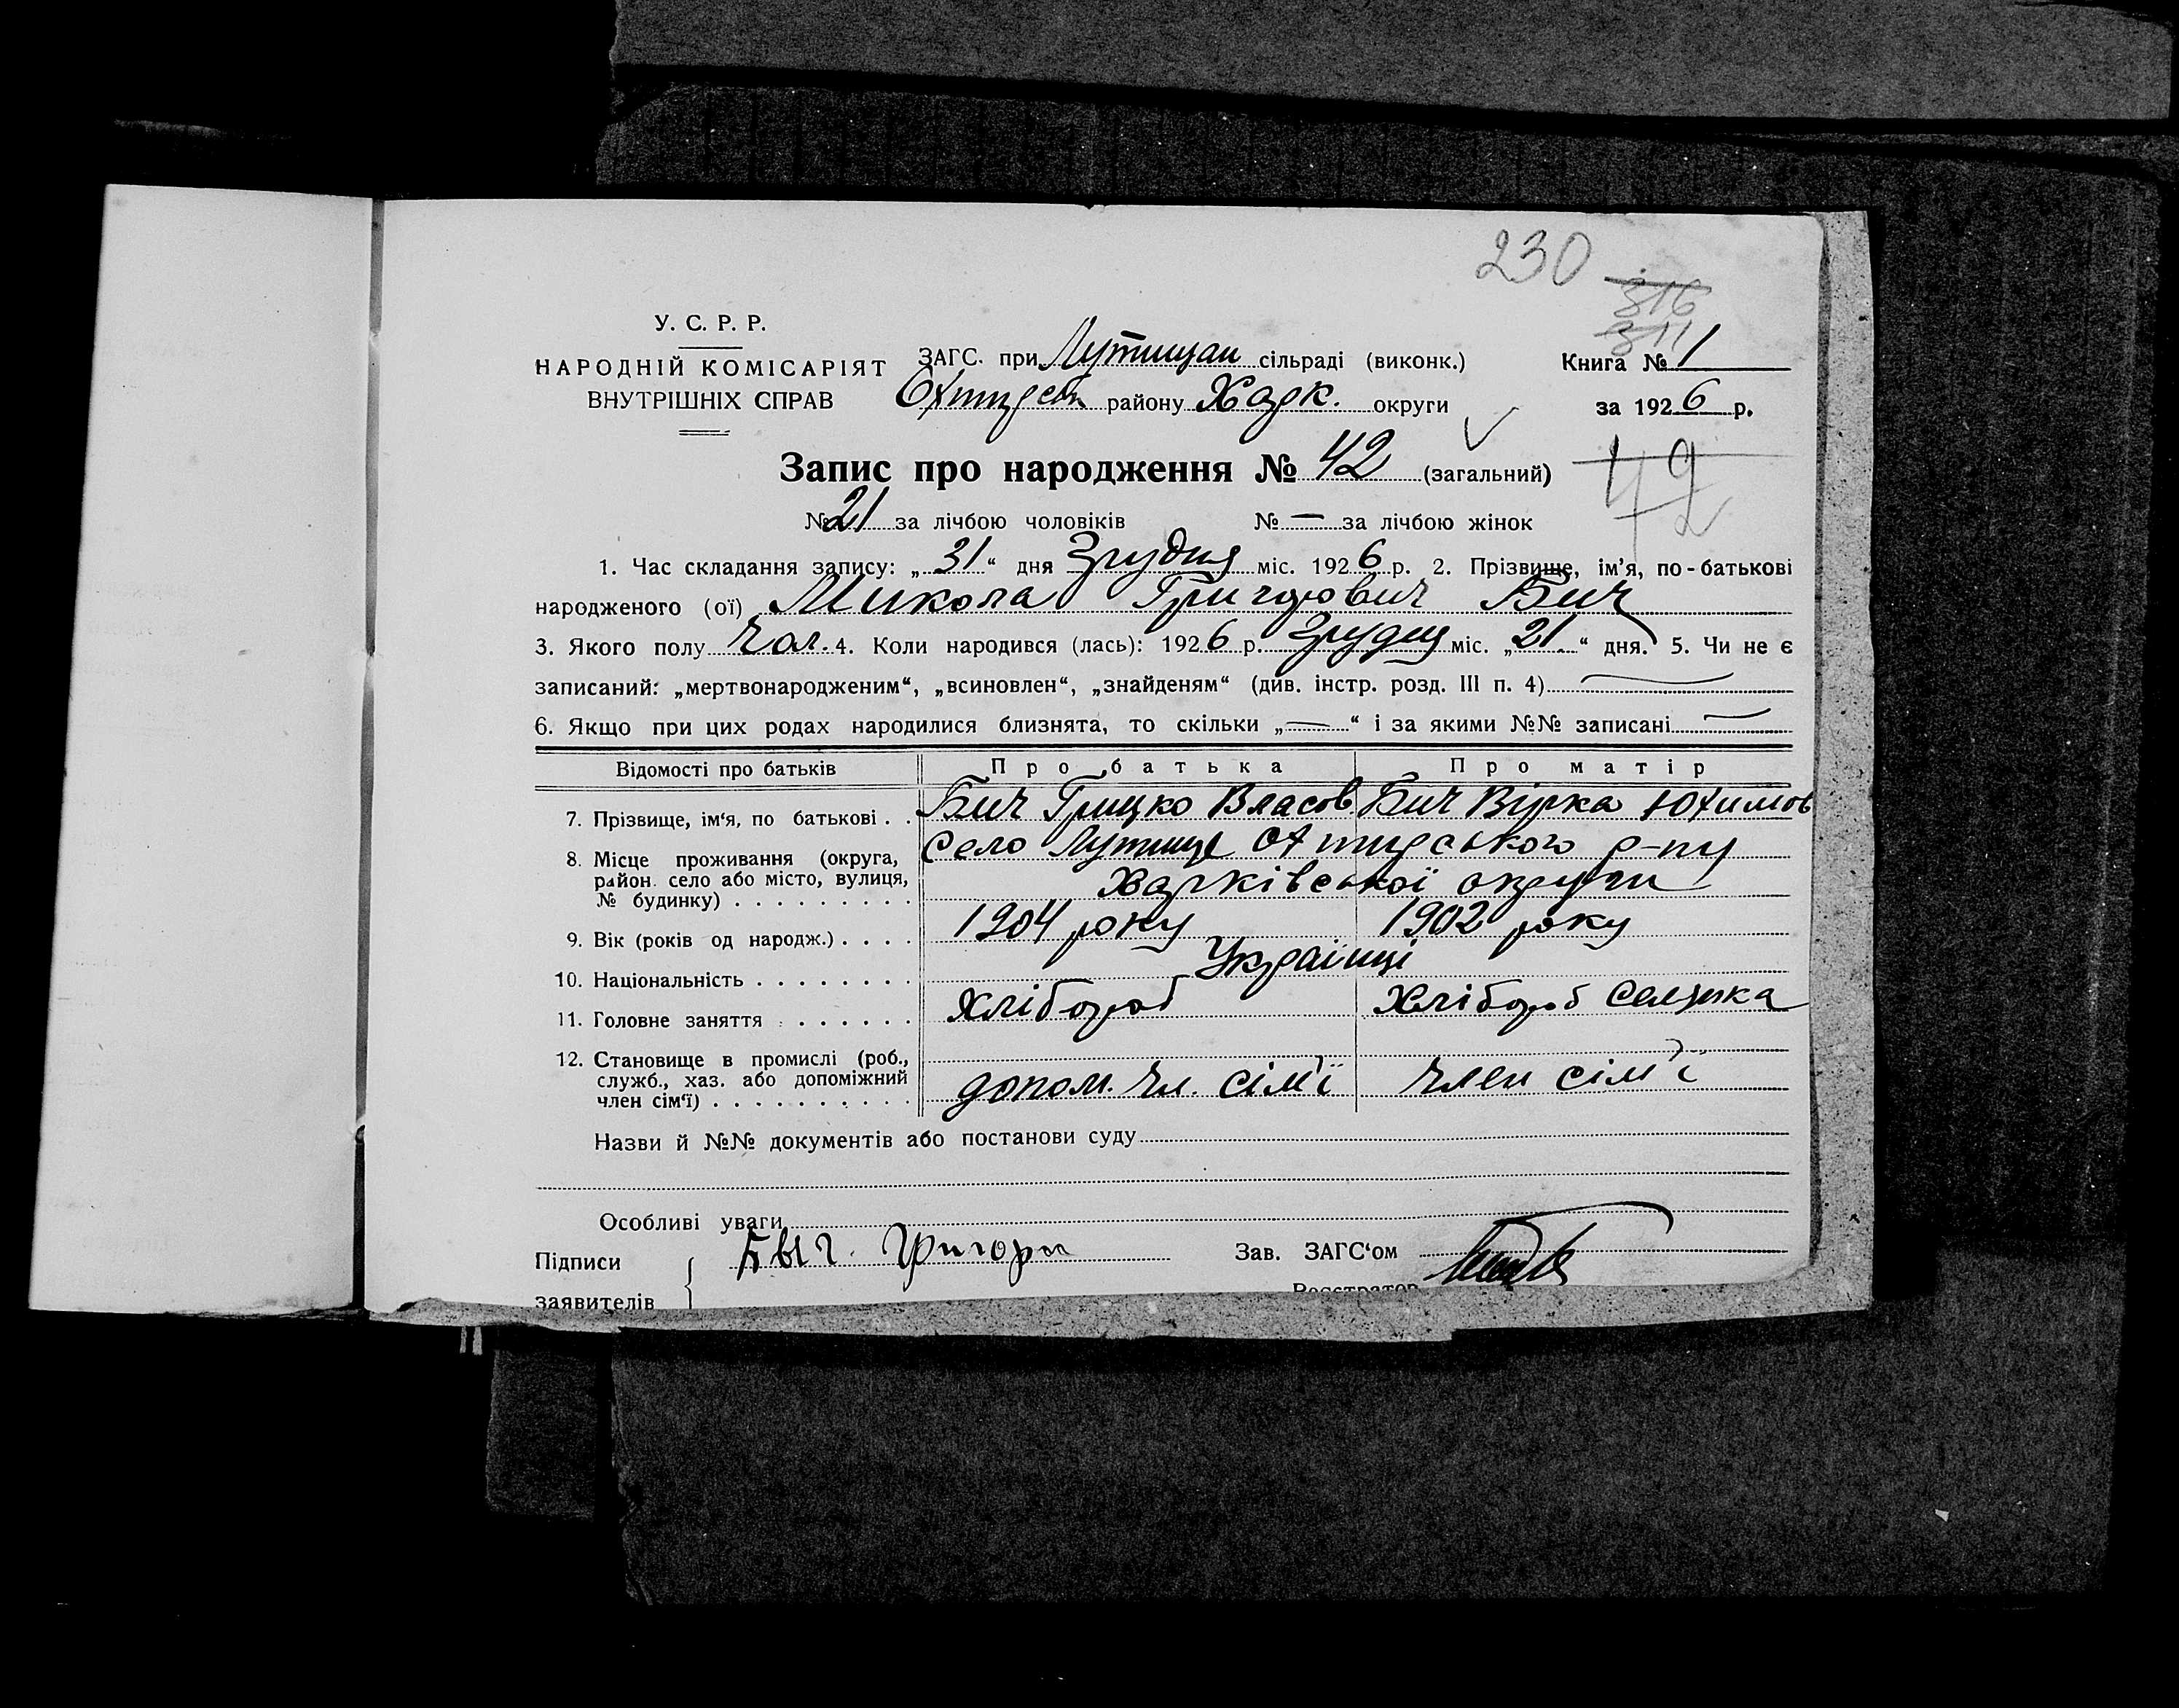 230
316
311
У. С. Р. Р.
НАРОДНІЙ КОМІСАРІЯТ
ВНУТРІШНІХ СПРАВ
ЗАГС. при Лутищан сільраді (виконк.)
Охтирськ району Харк. округи
Книга № 1
за 1926 р.
Запис про народження № 42 (загальний)
42
№ 21 за лічбою чоловіків № — за лічбою жінок
1. Час складання запису: „31“ дня Грудня міс. 1926 р. 2. Прізвище, ім’я, по-батькові
народженого (ої) Микола Григорович Бич
3. Якого полу Чол. 4. Коли народився (лась): 1926 р. Грудня міс. „21.“ дня. 5. Чи не є
записаний: „мертвонародженим“, „всиновлен“, „знайденям“ (див. інстр. розд. III п. 4) —
6. Якщо при цих родах народилися близнята, то скільки „—“ і за якими №№ записані —
Відомості про батьків Про батька Про матір
7. Прізвище, ім‘я, по батькові . . Бич Грицко Власов. Бич Вірка Юхимов
8. Місце проживання (округа, район. село або місто, вулиця, № будинку) . . . . . . . . . Село Лутище Охтирського р-ну
Харківської округи
9. Вік (років од народж.) . . . . 1904 року 1902 року
10. Національність . . . . . . . . Українці
11. Головне заняття . . . . . . . Хлібороб Хлібороб Селянка
12. Становище в промислі (роб., служб., хаз. або допоміжний член сім‘ї) . . . . . . . . . . допом. чл. сім'ї член сім'ї
Назви й №№ документів або постанови суду
Особливі уваги
Підписи
заявителів
Быч. Григори
Зав. ЗАГС‘ом
Реєстратор